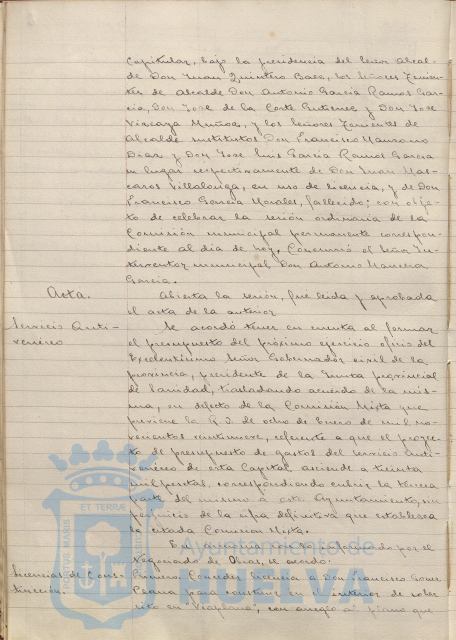 Capitular, bajo la presidencia del Señor Alcal-
de Don Juan Quintero Baez, los señores Tenien-
tes de Alcalde Don Antonio García Ramos Gar-
cía, Don José de la Corte Gutierrez y Don José
Vizcaya Muñoz, y los señores Tenientes de
Alcalde sustitutos Don Francisco
Diaz y Don José Luis García Ramos García
en lugar respectivamente de Don Juan Mas-
caros Villalonga, en uso de licencia, y de Don
Francisco García Morales, fallecido; con obje-
to de celebrar la sesión ordinaria de la
Comisión municipal permanente correspon-
diente al día de hoy. Concurrió el Señor In-
terventor municipal Don Antonio
García.
Acta. Abierta la sesión, fue leida y aprobada
el acta de la anterior.
Servicio Anti-
venéreo
Se acordó tener en cuenta al formar
el presupuesto del próximo ejercicio oficio del
Excelentísimo Señor Gobernador civil de la
provincia, presidente de la Junta provincial
de Sanidad, trasladando acuerdo de la mis-
ma, en defecto de la Comisión Mixta que
previene la R. O. de ocho de Enero de mil no-
vecientos veintinueve, referente a que el proyec-
to de presupuesto de gastos del servicio Anti-
venéreo de esta Capital asciende a treinta
mil pesetas, correspondiendo cubrir la tercera
parte del mismo a este Ayuntamiento, sin
perjuicio de la cifra definitiva que establezca
la citada Comisión Mixta.
En armonía con lo informado por el
Negociado de Obras, se acordó:
Licencias de Cons-
trucción.
Primero. Conceder licencia a Don Francisco Gomez
para construir en el interior de
sito en "", con arreglo al plano que
ET TERRÆ
Ayuntamiento de
HUELVA